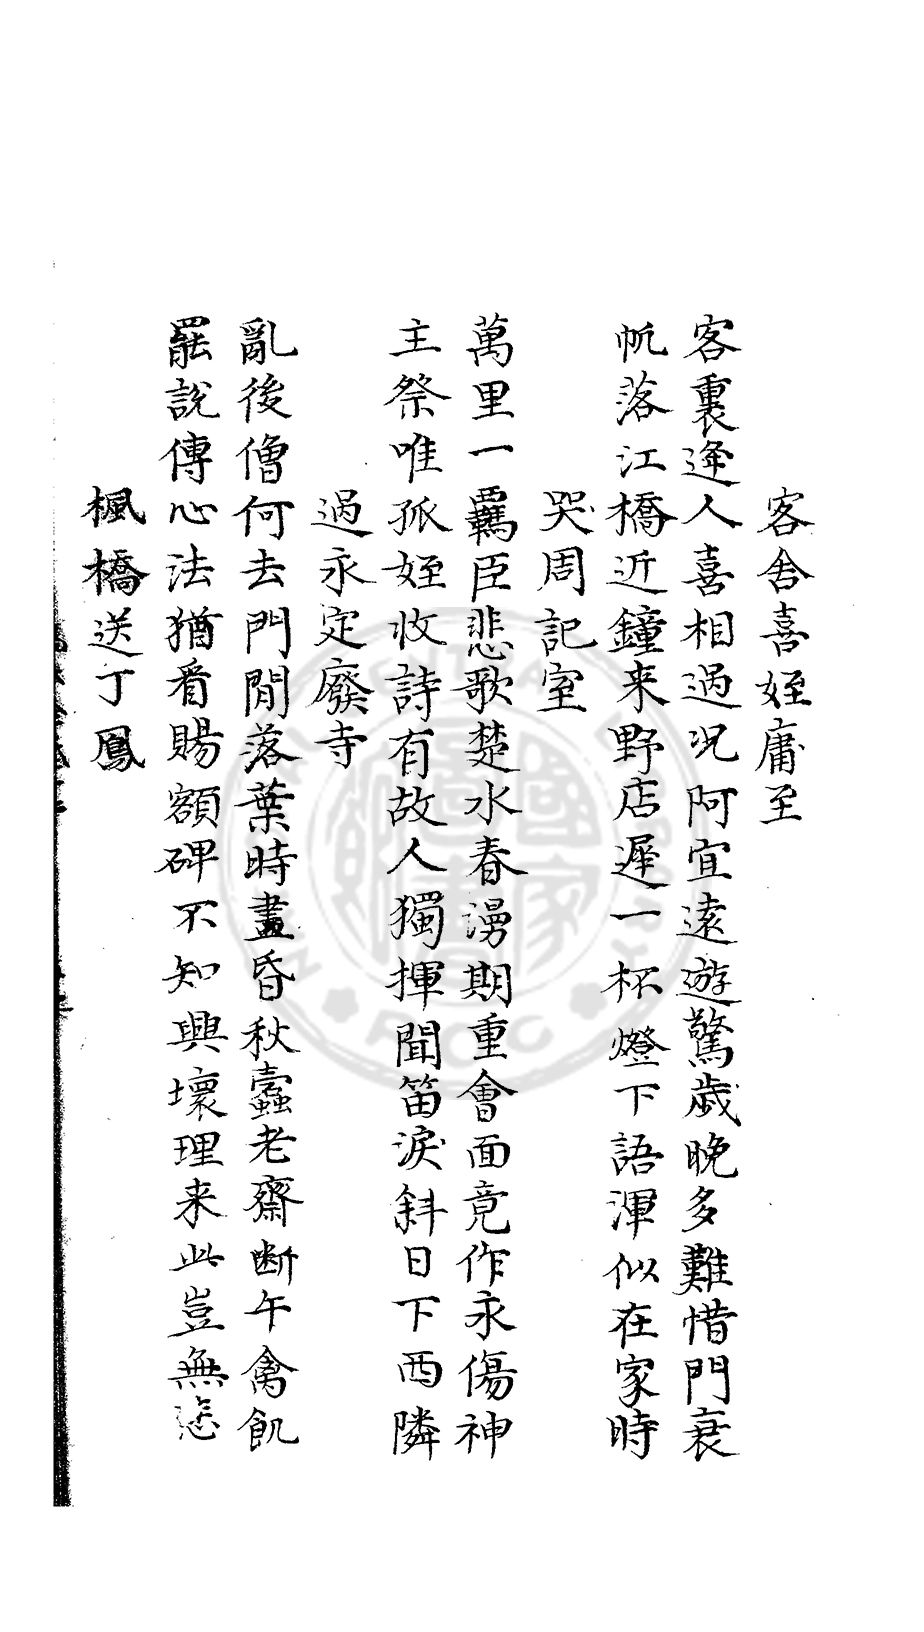 客舍喜姪庸至
客裏逢人喜相過況阿宜遠遊驚歲晚多難惜門衰
帆落江橋近鐘来野店遲一杯燈下語渾似在家時
哭周記室
萬里一羈臣悲歌楚水春謾期重會面竟作永傷神
主祭唯孤姪收詩有故人獨揮聞笛淚斜日下西隣
過永定廢寺
亂後僧何去門閒落葉時畫昏秋蠹老齋断午禽飢
罷説傳心法猶看賜額碑不知興壞理来此豈無悲
楓橋送丁鳳